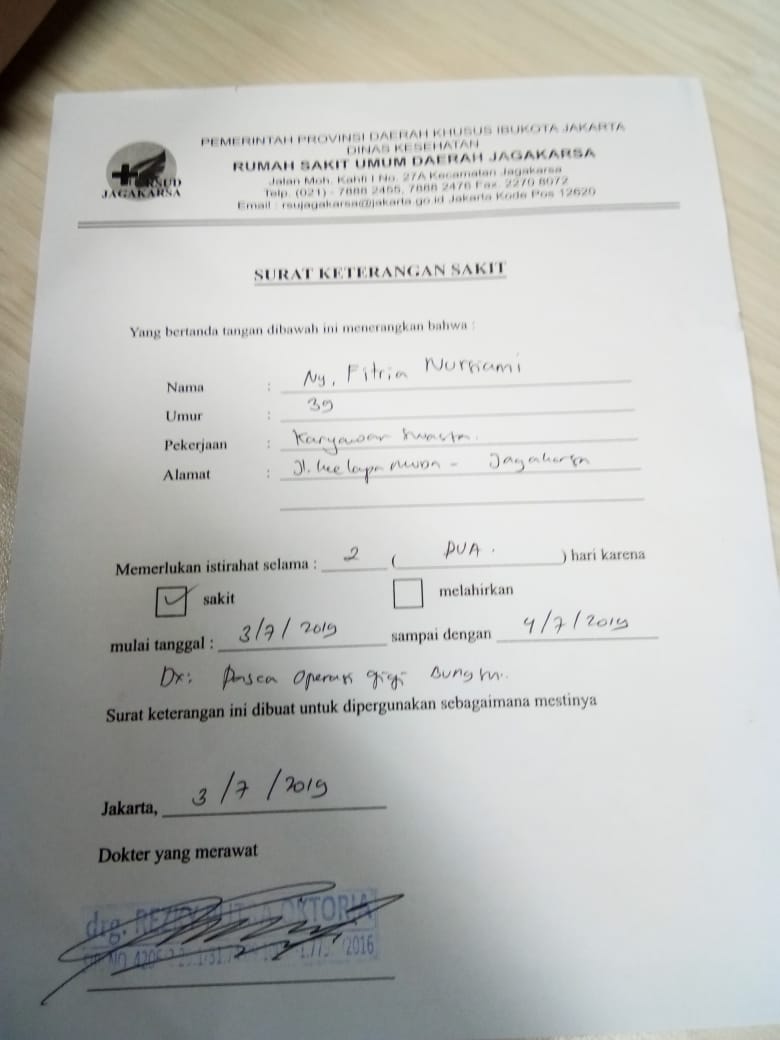 PEMERINTAH PROVINSI DAERAH KHUSUS IBUKOTA JAKARTA
DINAS KESEHATAN
RUMAH SAKIT UMUM DAERAH JAGAKARSA
Jalan Moh. Kahfi I No. 27A Kecamatan Jagakarsa
Telp. (021) - 7888 2455, 7888 2476 Fax. 2270 8072
Email : rsujagakarsa@jakarta.go.id Jakarta Kode Pos 12620
RSUD
JAGAKARSA
SURAT KETERANGAN SAKIT
Yang bertanda tangan dibawah ini menerangkan bahwa :
Nama : Ny. Fitria
Umur : 39
Pekerjaan : Karyawan Swasta.
Alamat : Jl. - Jagakarsa
Memerlukan istirahat selama : 2 ( DUA . ) hari karena
sakit melahirkan
mulai tanggal : 3/7/2019 sampai dengan 4/7/2019
Dx: Pasca Operasi gigi Bungsu.
Surat keterangan ini dibuat untuk dipergunakan sebagaimana mestinya
Jakarta, 3/7/2019
Dokter yang merawat
drg. OKTORIA
2016